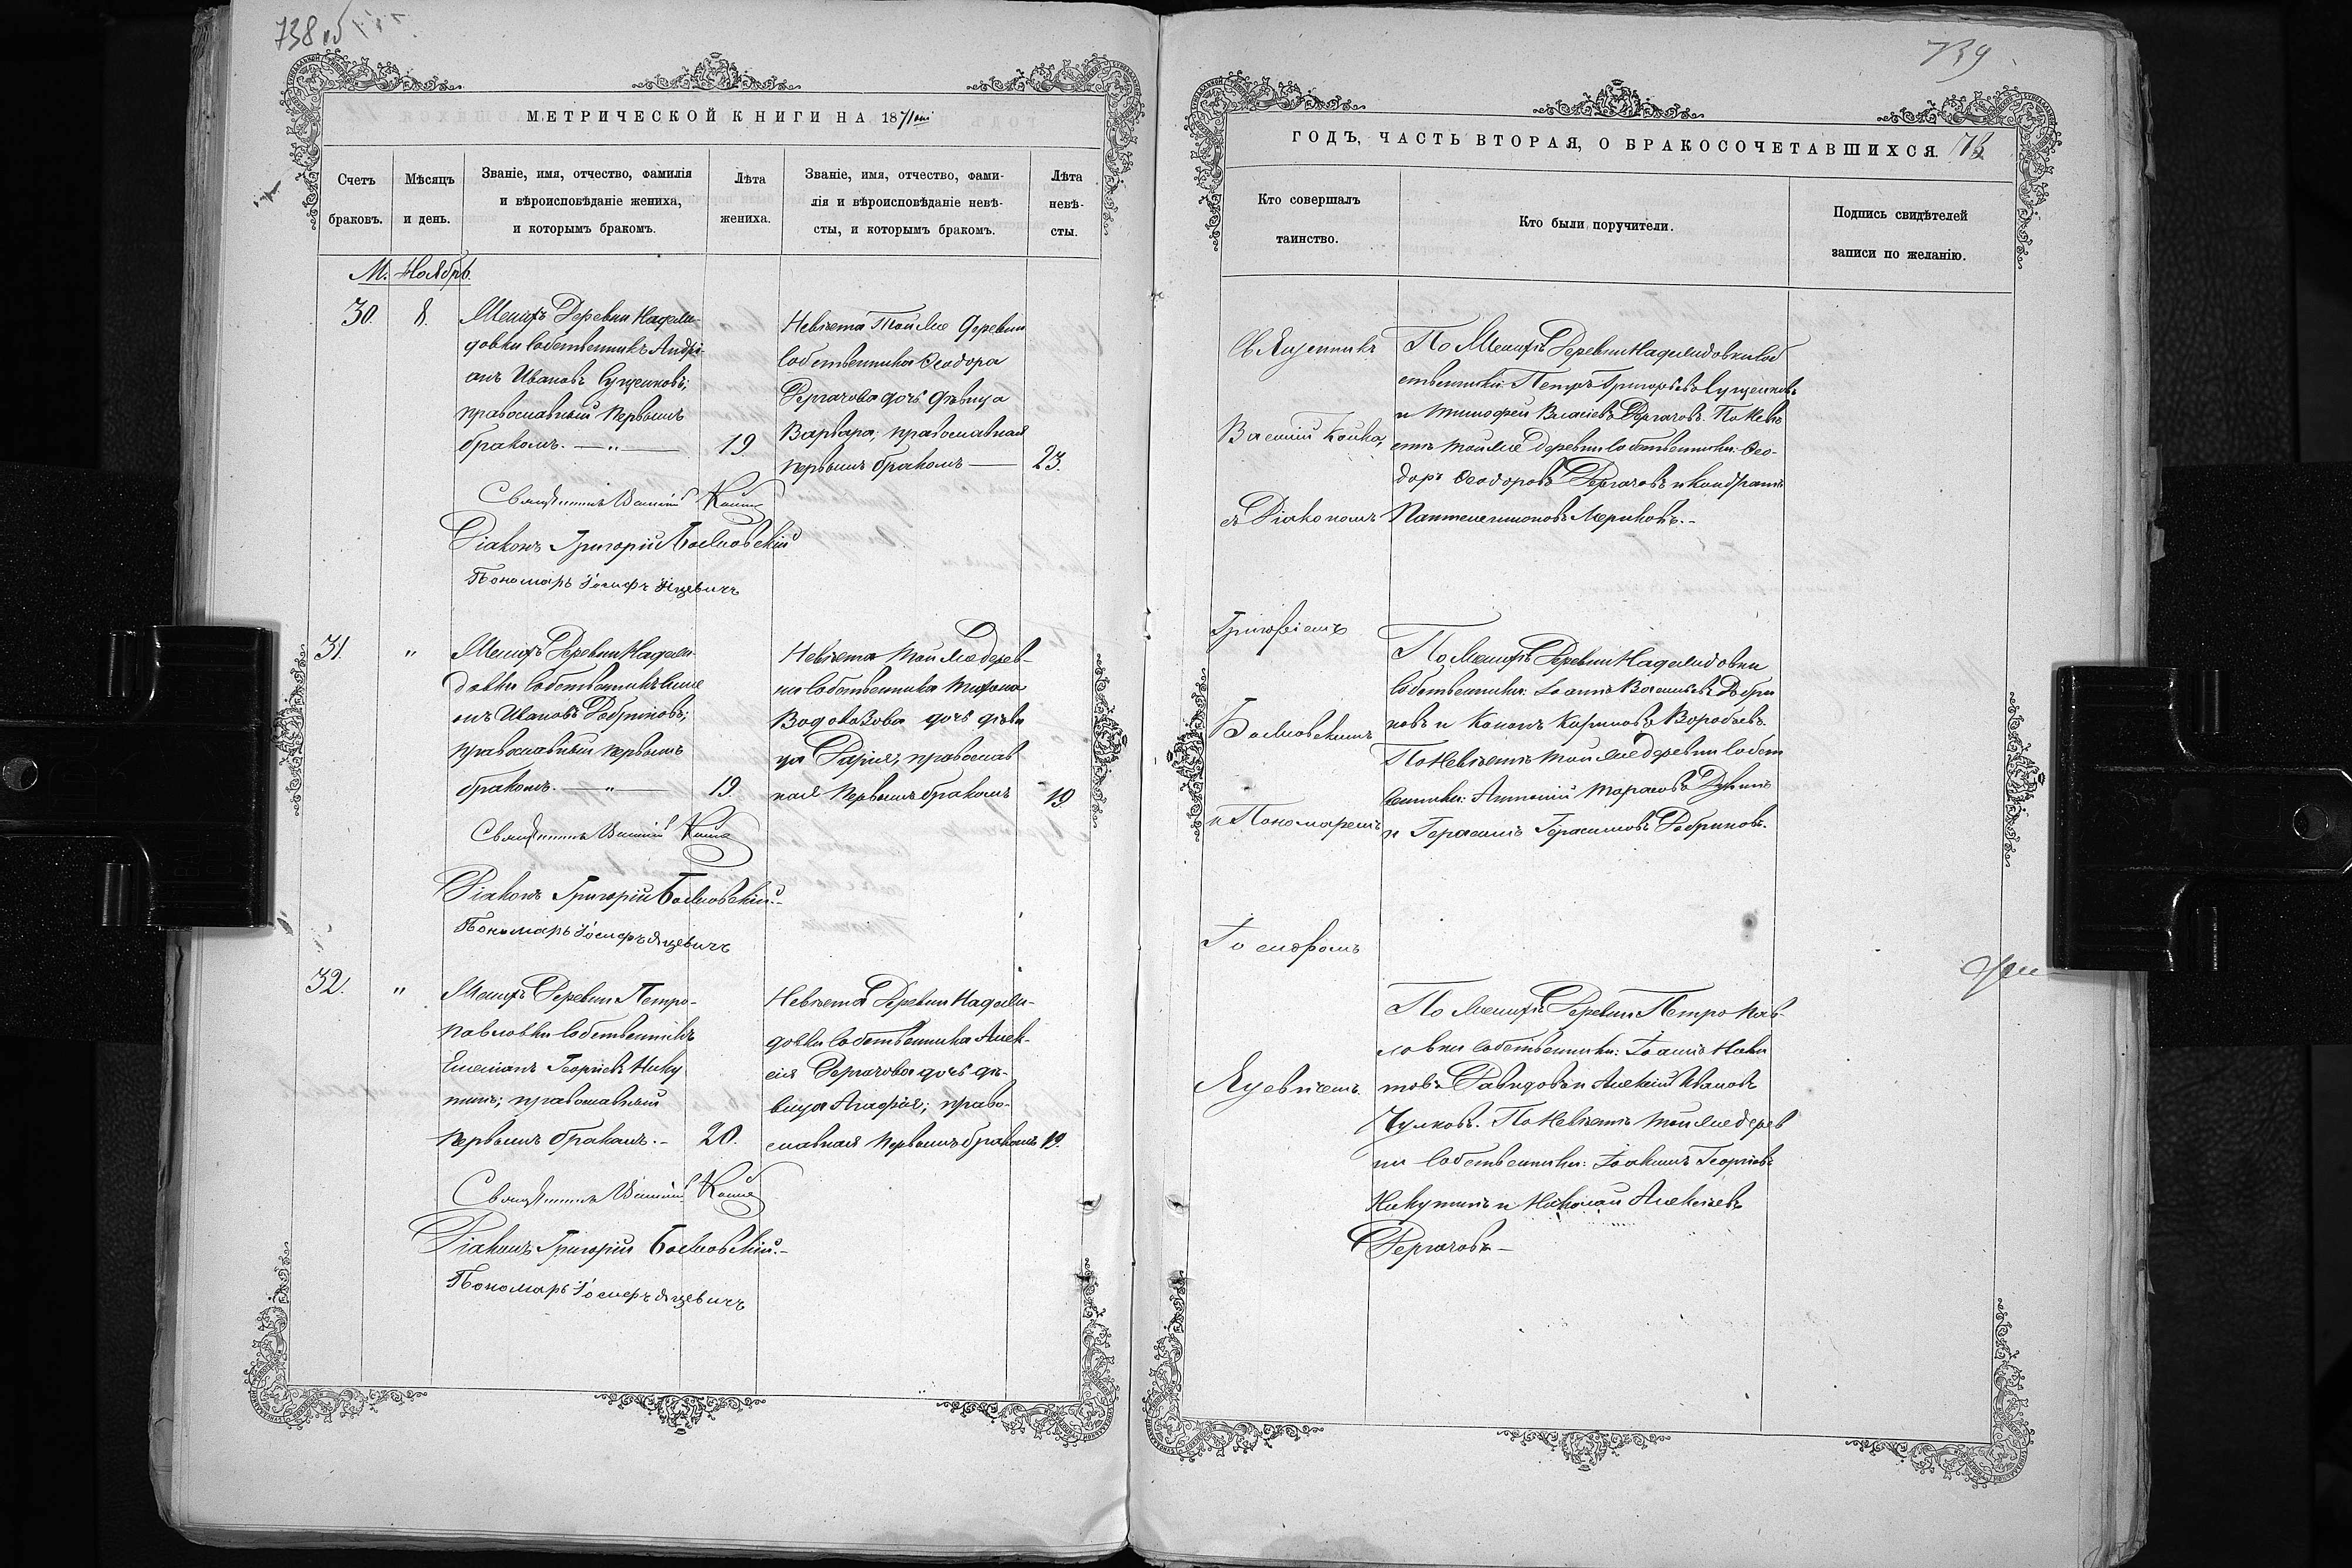 738 об
МЕТРИЧЕСКОЙ КНИГИ НА 1871ый
Счетъ браковъ.
Мѣсяцъ и день.
Званіе, имя, отчество, фамилія
и вѣроисповѣданіе жениха,
и которымъ бракомъ.
Лѣта
жениха.
Званіе, имя, отчество, фами-
лія и вѣроисповѣданіе невѣ-
сты, и которымъ бракомъ.
Лѣта
невѣ-
сты.
М. Ноябрь.
30.
8.
Женихъ Деревни Надежи-
довки собственникъ Андрі-
анъ Ивановъ Сущенковъ;
православный первымъ
бракомъ. — „ —
19
Невѣста той же деревни
собственника Ѳеодора
Дергачова дочь дѣвица
Варвара; православная
первымъ бракомъ —
23.
Священникъ Василій
Діаконъ Григорій Божовскій
Пономарь Іосифъ Яцевичъ
31.
„
Женихъ Деревни Надежи-
довки собственникъ Симе
онъ Ивановъ Добриковъ;
православный первымъ
бракомъ. — „ —
19
Невѣста той же дерев-
ни собственника Тихона
Водовозова дочь дѣви
ца Дарія; православ
ная первымъ бракомъ
19
Священникъ Василій
Діаконъ Григорій Божовскій.-
Пономарь Іосифъ Яцевичъ
32.
„
Женихъ Деревни Петро-
павловки собственникъ
Емеліанъ Георгіевъ Нику
тинъ; православный
первымъ бракомъ. -
20.
Невѣста Деревни Надежи-
довки собственника Алек-
сія Дергачова дочь дѣ-
вица Агафія; право-
славная первымъ бракомъ
19.
Священникъ Василій
Діаконъ Григорій Божовскій.-
Пономарь Іосифъ Яцевичъ
739
ГОДЪ, ЧАСТЬ ВТОРАЯ, О БРАКОСОЧЕТАВШИХСЯ.
Кто совершалъ
таинство.
Кто были поручители.
Подпись свидѣтелей
записи по желанію.
Священникъ
Василій
съ Діакономъ
Григоріемъ
Божовскимъ
и Пономаремъ
Іосифомъ
Яцевичемъ.
По Женихѣ Деревни Надежидовки соб
ственники: Петръ Григорьевъ Сущенковъ
и Тимофей Власіевъ Дергачовъ. По Невѣ
стѣ той же деревни собственники: Ѳео-
доръ Ѳеодоровъ Дергачовъ и Кондратъ
Пантелеимоновъ Мериковъ. -
По Женихѣ Деревни Надежидовки
собственники: Іоаннъ Васильевъ Добри
ковъ и Кононъ Карповъ Воробьевъ.
По Невѣстѣ той же деревни собст
венники: Антоній Тарасовъ Дукинъ
и Герасимъ Герасимовъ Добриковъ.
По Женихѣ Деревни Петропав-
ловки собственники: Іоаннъ Ники
товъ Давидовъ и Алексій Ивановъ
Чулковъ. По Невѣстѣ той же дерев
ни собственники: Іоакимъ Георгіевъ
Никутинъ и Николай Алексѣевъ
Дергачовъ —